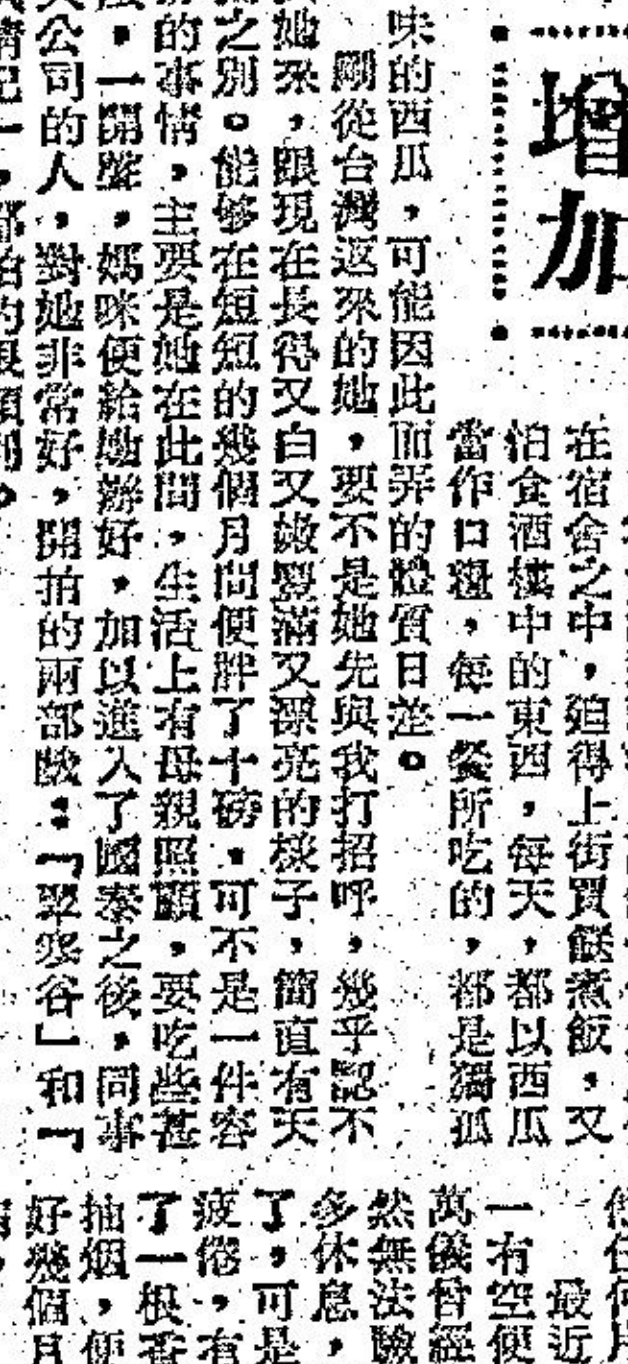 增加
在宿舍之中，廹得上街買餸煮飯，又
怕食酒樓中的東西，每天，都以西瓜
當作口糧，每一餐所吃的，都是獨孤
味的西瓜，可能因此而弄的體質日差。
剛從台灣返來的她，要不是她先與我打招呼，幾乎認不
她來，跟現在長得又白又嫩豐滿又漂亮的樣子，簡直有天
之別。能够在短短的幾個月間便胖了十磅，可不是一件容
的事情，主要是她在此間，生活上有母親照顧，要吃些甚
，一開聲，媽咪便給她辦好，加以進入了國泰之後，同事
公司的人，對她非常好，開拍的兩部戲：「翠谷」和「
情記」，都拍的很順利。
最近
一有空便
萬儀曾經
然無法驗
多休息，
了，可是
疲倦，有
了一根香
抽烟，便
好幾個月